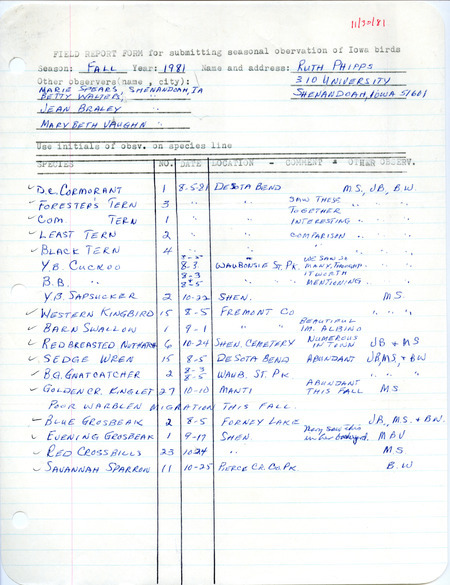 11/30/81
FIELD REPORT FORM for submitting seasonal obervation of Iowa birds
Season: FALL Year: 1981 Name and address: RUTH PHIPPS
Other observers(name , city): 310 UNIVERSITY
MARIE SPEARS, SHENANDOAH, IA SHENANDOAH, IOWA 51601
BETTY WALTERS, "
JEAN BRALEY "
MARY BETH VAUGHN "
Use initials of obsv. on species line
SPECIES NO. DATE LOCATION - COMMENT & OTHER OBSERV.
✓ D.C. CORMORANT 1 8-5-81 DESOTA BEND M.S., JB, B.W.
✓ FORESTER'S TERN 3 " " " SAW THESE TOGETHER " " "
✓ COM. TERN 1 " " " INTERESTING " " "
✓ LEAST TERN 2 " " COMPARISON " " "
✓ BLACK TERN 4 " " "
Y.B. CUCKOO 8-3 WAUBONSIE ST. PK. WE SAW SO MANY, THOUGH " " "
B.B. " 8-3 8-5 " IT WORTH MENTIONING. " " "
Y.B. SAPSUCKER 2 10-22 SHEN. M.S.
✓ WESTERN KINGBIRD 15 8-5 FREMONT CO " " "
✓ BARN SWALLOW 1 9-1 " " BEAUTIFUL IM. ALBINO
✓ RED BREASTED NUTHATCH 6 10-24 SHEN. CEMETERY NUMEROUS IN TOWN JB + MS
✓ SEDGE WREN 15 8-5 DESOTA BEND ABUNDANT JB, MS, + BW
✓ B.G. GNATCATCHER 2 8-3 8-5 WAUB. ST. PK " " "
✓ GOLDEN CR. KINGLET 27 10-10 MANTI ABUNDANT THIS FALL M.S
POOR WARBLER MIGRATION THIS FALL.
✓ BLUE GROSBEAK 2 8-5 FORNEY LAKE JB, M.S. + B.W.
✓ EVENING GROSBEAK 1 9-17 SHEN. Mary saw this in her backyard. MBV
✓ RED CROSSBILLS 23 10-24 " M.S
✓ SAVANNAH SPARROW 11 10-25 PIERCE CR. CO. PK. B.W